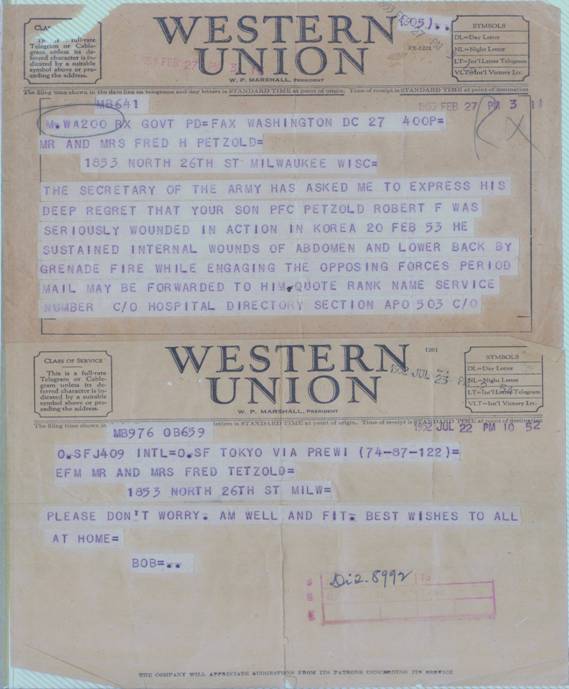 WESTERN
UNION
W. P. MARSHALL, PRESIDENT
CLASS
This is a full-rate
Telegram or Cable-
gram unless its de-
ferred character is in-
dicated by a suitable
symbol above or pre-
ceding the address.
SYMBOLS
DL=Day Letter
NL=Night Letter
LT=Int'l Letter Telegram
VLT=Int'l Victory Ltr.
The filing time shown in the date line on telegrams and day letters is STANDARD TIME at point of origin. Time of receipt is STANDARD TIME at point of destination
MB641
FEB 27 PM 3
M.WA200 RX GOVT PD=FAX WASHINGTON DC 27 400P=
MR AND MRS FRED H PETZOLD=
1853 NORTH 26TH ST MILWAUKEE WISC=
THE SECRETARY OF THE ARMY HAS ASKED ME TO EXPRESS HIS
DEEP REGRET THAT YOUR SON PFC PETZOLD ROBERT F WAS
SERIOUSLY WOUNDED IN ACTION IN KOREA 20 FEB 53 HE
SUSTAINED INTERNAL WOUNDS OF ABDOMEN AND LOWER BACK BY
GRENADE FIRE WHILE ENGAGING THE OPPOSING FORCES PERIOD
MAIL MAY BE FORWARDED TO HIM, QUOTE RANK NAME SERVICE
NUMBER C/O HOSPITAL DIRECTORY SECTION APO 503 C/O
WESTERN
UNION
W. P. MARSHALL, PRESIDENT
1201
CLASS OF SERVICE
This is a full-rate
Telegram or Cable-
gram unless its de-
ferred character is in-
dicated by a suitable
symbol above or pre-
ceding the address.
SYMBOLS
DL=Day Letter
NL=Night Letter
LT=Int'l Letter Telegram
VLT=Int'l Victory Ltr.
The filing time shown in the date line on telegrams and day letters is STANDARD TIME at point of origin. Time of receipt is STANDARD TIME at point of destination
MB976 OB659
1952 JUL 22 PM 10 52
O.SFJ409 INTL=O.SF TOKYO VIA PREWI (74-87-122)=
EFM MR AND MRS FRED TETZOLD=
1853 NORTH 26TH ST MILW=
PLEASE DON'T WORRY. AM WELL AND FIT. BEST WISHES TO ALL
AT HOME=
BOB=..
Di2.8992
THE COMPANY WILL APPRECIATE SUGGESTIONS FROM ITS PATRONS CONCERNING ITS SERVICE